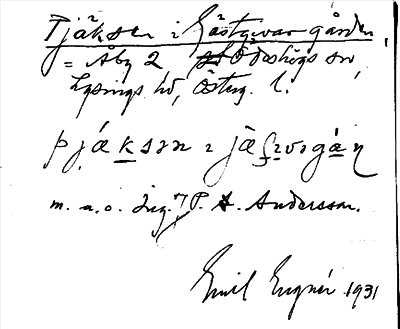 Tjäksen i Gästgivargården,
= Åby 2 Ödeshögs sn,
Lysings hd, Östg. l.
þjáksən ı jäs̨ıvəgá̱ṇ
m. a. o. Ing. P. A. Andersson.
Emil Engnér 1931